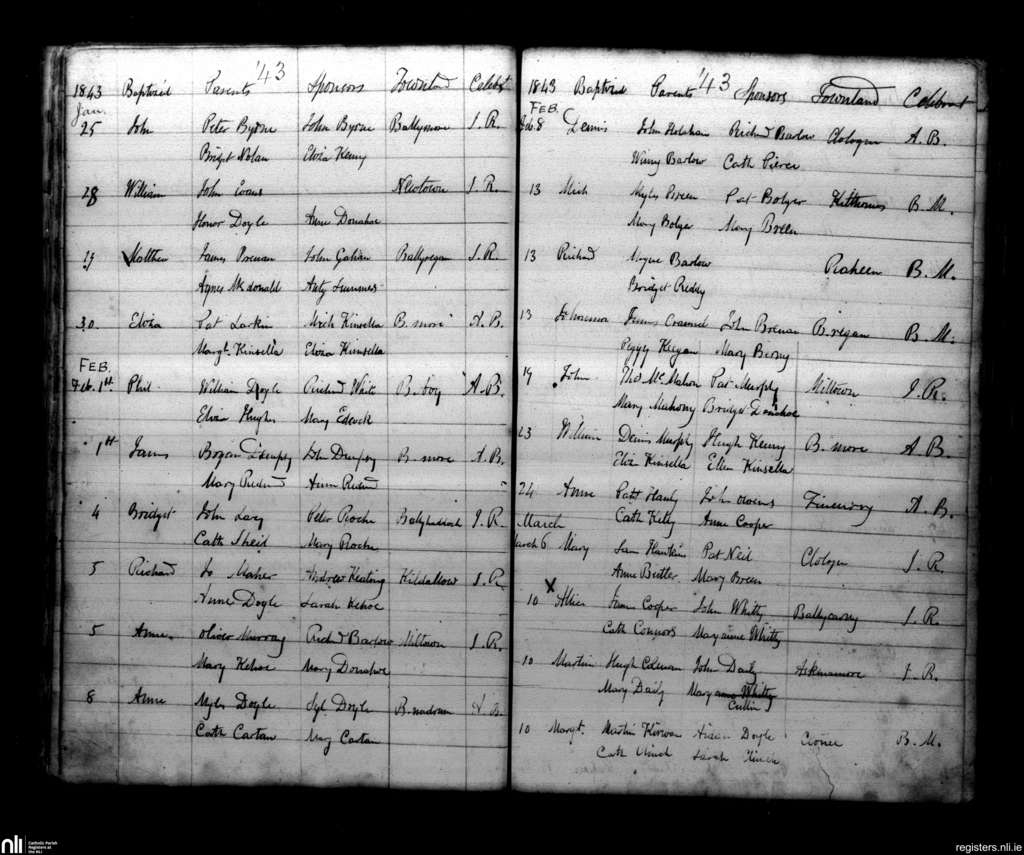 '43
1843 Baptized Parents Sponsors Townland Celebt
Jan.
25 John Peter Byrne John Byrne Ballymore J. R.
Bridget Nolan Eliza Kenny
28 William John Evans Newtown J. R.
Honor Doyle Anne Donahoe
29 Matthew James Brenan John Gahan Ballyregan J. R.
Agnes McDonald Anty Summers
30. Eliza Pat Larkin Mich Kinsella B. more A. B.
Margt. Kinsella Eliza Kinsella
FEB.
Feb. 1st Phil William Doyle Richd White B. boy A. B.
Eliza Hughs Mary Edcock
1st James Bryan Dempsy John Dempsy B. more A. B.
Mary Redmd Anne Redmd
4 Bridget John Lacy Peter Roche J. R.
Cath Sheil Mary Roche
5 Richard Jo Maher Andrew Keating Kildallow J. R.
Anne Doyle Sarah Kehoe
5 Anne Oliver Murray Richd Barlow Miltown J. R.
Mary Kehoe Mary Donahoe
8 Anne Myles Doyle Syl Doyle A. B.
Cath Cartan Mary Cartan
'43
1843 Baptized Parents Sponsors Townland Celebrant
FEB.
Feb. 8 Dennis John Holohan Richd Barlow Cloloque A. B.
Winny Barlow Cath Pierce
13 Mich Myles Breen Pat Bolger Kilthomas B. M.
Mary Bolger Mary Breen
13 Richard Barlow Raheen B. M.
Bridget Reddy
13 James John Brenan B. regan B. M.
Peggy Keegan Mary Birny
19 John Thos McMahon Pat Murphy Miltown J. R.
Mary Mahony Bridget Donohoe
23 William Denis Murphy Hugh Kenny B. more A. B.
Eliza Kinsella Ellen Kinsella
24 Anne Patt Hanly John Owens A. B.
Cath Kelly Anne Cooper
March
March 6 Mary Jam Hawkins Pat Neil Clologue J. R.
Anne Butler Mary Breen
X
10 Allice James Cooper John Whitty Ballycarny J. R.
Cath Connors Maryanne Whitty
10 Martin Hugh John Daily Askinamore J. R.
Mary Daily Maryanne Whitty
Cullin
10 Margt. Martin Kirwan Doyle B. M.
Cath Sarah
nli
Catholic Parish
Registers at
the NLI
registers.nli.ie